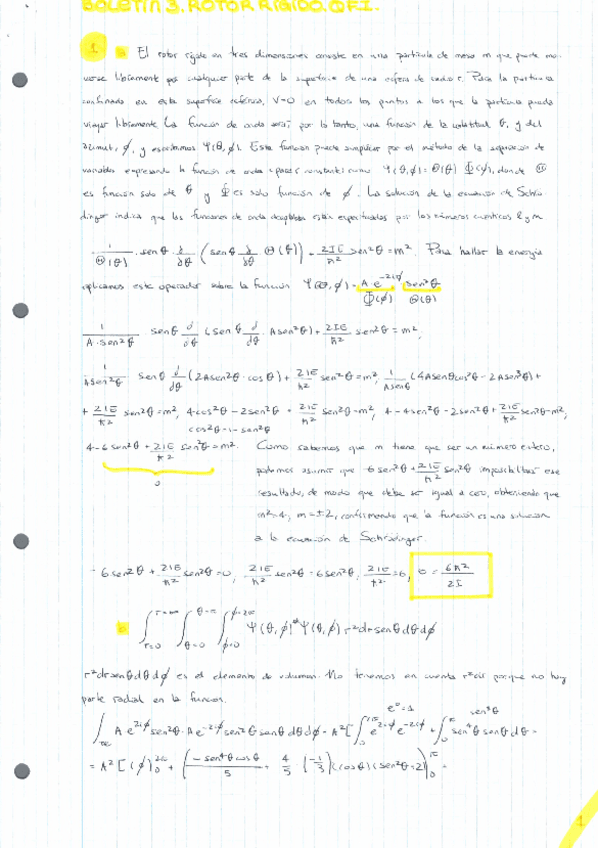 BOLETÍN 3. ROTOR RÍGIDO. QFI.
1 a El rotor rígido en tres dimensiones consiste en una partícula de masa m que puede mo-
verse libremente por cualquier parte de la superficie de una esfera de radio r. Para la partícula
confinada en esta superficie esférica, V=0 en todos los puntos a los que la partícula puede
viajar libremente. La función de onda será, por lo tanto, una función de la colatitud θ, y del
azimut, ϕ, y escribimos Ψ(θ,ϕ). Esta función puede simplificar por el método de la separación de
variables expresando la función de onda (para r constante) como Ψ(θ,ϕ) = Θ(θ) Φ(ϕ), donde Θ
es función solo de θ y Φ es solo función de ϕ. La solución de la ecuación de Schrö-
dinger indica que las funciones de onda aceptables están especificadas por los números cuánticos l y m
1/Θ(θ) · senθ d/dθ (senθ d/dθ Θ(θ)) + 2IE/ħ² sen²θ = m². Para hallar la energía
aplicamos este operador sobre la función Ψ(θ,ϕ) = A e^-2iϕ sen²θ
Φ(ϕ) Θ(θ)
1/A·sen²θ senθ d/dθ (senθ d/dθ Asen²θ) + 2IE/ħ² sen²θ = m²;
1/Asen²θ senθ d/dθ (2Asen²θ·cosθ) + 2IE/ħ² sen²θ = m²; 1/Asenθ (4Asenθcos²θ - 2Asen³θ) +
+ 2IE/ħ² sen²θ = m², 4cos²θ - 2sen²θ + 2IE/ħ² sen²θ = m², 4 - 4sen²θ - 2sen²θ + 2IE/ħ² sen²θ = m²,
cos²θ = 1 - sen²θ
4 - 6sen²θ + 2IE/ħ² sen²θ = m². Como sabemos que m tiene que ser un número entero,
podemos asumir que -6sen²θ + 2IE/ħ² sen²θ imposibilitará ese
resultado, de modo que debe ser igual a cero, obteniendo que
m² = 4, m = ±2, confirmando que la función es una solución
a la ecuación de Schrödinger.
- 6sen²θ + 2IE/ħ² sen²θ = 0, 2IE/ħ² sen²θ = 6sen²θ, 2IE/ħ² = 6, E = 6ħ²/2I
∫r=0 r=∞ ∫θ=0 θ=π ∫ϕ=0 ϕ=2π Ψ(θ,ϕ)* Ψ(θ,ϕ) r²dr senθ dθ dϕ
r²dr senθ dθ dϕ es el elemento de volumen. No tenemos en cuenta r²dr porque no hay
parte radial en la función.
e⁰ = 1 sen⁵θ
∫ A e^2iϕ sen²θ · A e^-2iϕ sen²θ senθ dθ dϕ = A² [∫0 2π e^2iϕ e^-2iϕ + ∫0 π sen⁴θ senθ dθ =
= A² [(ϕ)0 2π + (-sen⁴θ cosθ/5 + 4/5 · (-1/3)(cosθ)(sen²θ+2))0 π =
1